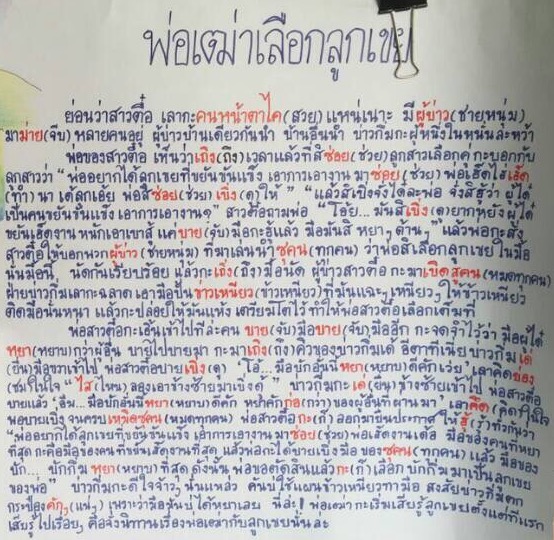 พ่อเฒ่าเลือกลูกเขย
ย่อนว่าสาวตื๋อ เลากะคนหน้าตาไค(สวย) แหน่เนาะ มีผู้บ่าว(ชายหนุ่ม)
มาม่าย(จีบ) หลายคนอยู่ ผู้บ่าวบ้านเดียวกันนำ บ้านอื่นนำ บ่าวกึ่มกะผู้หนึ่งในหนั่นล่ะหว้า
พ่อของสาวตื๋อ เห็นว่าเถิง(ถึง)เวลาแล้วที่สิซ่อย(ช่วย)ลูกสาวเลือกคู่กะบอกกับ
ลูกสาวว่า "พ่ออยากได้ลูกเขยที่ขยันขันแข็ง เอาการเอางาน มาซ่อย(ช่วย) พ่อเฮ็ดไฮ่เฮ็ด
(ทำ) นา ได้ลูกเอ้ย พ่อสิซ่อย(ช่วย)เบิ่ง(ดู)ให้" "แล้วสิเบิ่งจั่งได๋ล่ะพ่อ จั่งสิฮู้ว่า ผู้ได๋
เป็นคนขยันขันแข็ง เอาการเอางานๆ" สาวตื๋อถามพ่อ "โอ๊ย... มันสิเบิ่ง(ดู)ยากหยัง ผู้ได๋
ขยันเฮ็ดงาน หนักเอาเบาสู้ แค่บาย(จับ)มือกะฮู้แล้ว มือมันสิ หยาๆ ด้านๆ" แล้วพ่อกะสั่ง
สาวตื๋อให้บอกพวกผู้บ่าว(ชายหนุ่ม) ที่มาเล่นนำซุคน(ทุกคน) ว่าพ่อสิเลือกลูกเขยในมื้อ
นั้นมื้อนี้ นัดกันเรียบร้อย แล้วกะเถิง(ถึง)มื้อนัด ผู้บ่าวสาวตื๋อ กะมาเบิดสุคน(หมดทุกคน)
ฝ่ายบ่าวกึ่มเลากะฉลาด เอามือปั้นข้าวเหนียว(ข้าวเหนียว)ที่มันแฉะๆ เหนียวๆ ให้ข้าวเหนียว
ติดมือนั่นหนา แล้วกะปล่อยให้มันแห้ง เตรียมโตไว้ ทำให้พ่อสาวตื๋อเลือกเต็มที่
พ่อสาวตื๋อกะเอิ้นเข้าไปทีละคน บาย(จับ)มือบาย(จับ)มืออีก กะจดจำไว้ว่า มือผู้ได๋
หยา(หยาบ)กว่าผู้อื่น บายไปบายมา กะมาเถิง(ถึง)คิวของบ่าวกึ่มเด้ อีตาที่เนี้ย บ่าวกึ่มเด่
(ยื่น)มือขวาเข้าไป พ่อสาวตื๋อบายเบิ่ง(ดู) "โอ้... มือบักอันนี้หยา(หยาบ)ดีคักเว้ย" เลาคิดย่อง
(ชม)ในใจ "ไส(ไหน) ลองเอาข้างซ้ายมาเบิ่งดู๊" บ่าวกึ่มกะเด่(ยื่น)ข้างซ้ายเข้าไป พ่อสาวตื๋อ
บายแล้ว "อืม... มือบักอันนี้หยา(หยาบ)ดีคัก หน้าคักก่อ(กว่า)ของผู้อื่นที่ผ่านมา" เลาคึด(คิด)ในใจ
พ่อบายเบิ่ง จนครบเหมิดซุคน(หมดทุกคน) พ่อสาวตื๋อกะ(ก็) ลอกมายืนประกาศให้ฮู้(รู้)ทั่วกันว่า
"พ่ออยากได้ลูกเขยที่ขยันขันแข็ง เอาการเอางาน มาซ่อย(ช่วย)พ่อเฮ็ดงานเด้อ มือของคนที่หยา
ที่สุด กะคือมือของคนที่ขยันเฮ็ดงานที่สุด แล้วพ่อกะได้บายเบิ่งมือ ของซุคน(ทุกคน)แล้ว มือของ
บัก... บักกึ่ม หยา(หยาบ)ที่สุด ดังนั้น พ่อขอตัดสินแล้วกะ(ก็)เลือก บักกึ่ม มาเป็นลูกเขย
ของพ่อ" บ่าวกึ่มกะดีใจจ้าวๆ นั่นแหล่ว
เสียรู้ ไปเรื่อยๆ คือจั่งนิทานเรื่องพ่อเฒ่ากับลูกเขยนั่นล่ะ